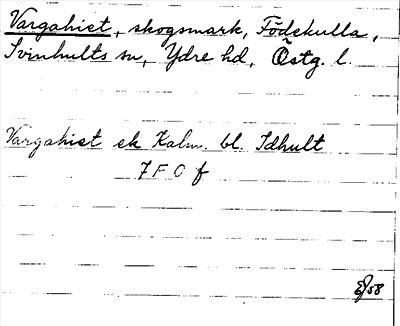 Vargahiet, skogsmark, Födekulla,
Svinhults sn, Ydre hd, Östg. l.
Vargahiet ek Kalm. bl. Idhult
7 F 0 f
58